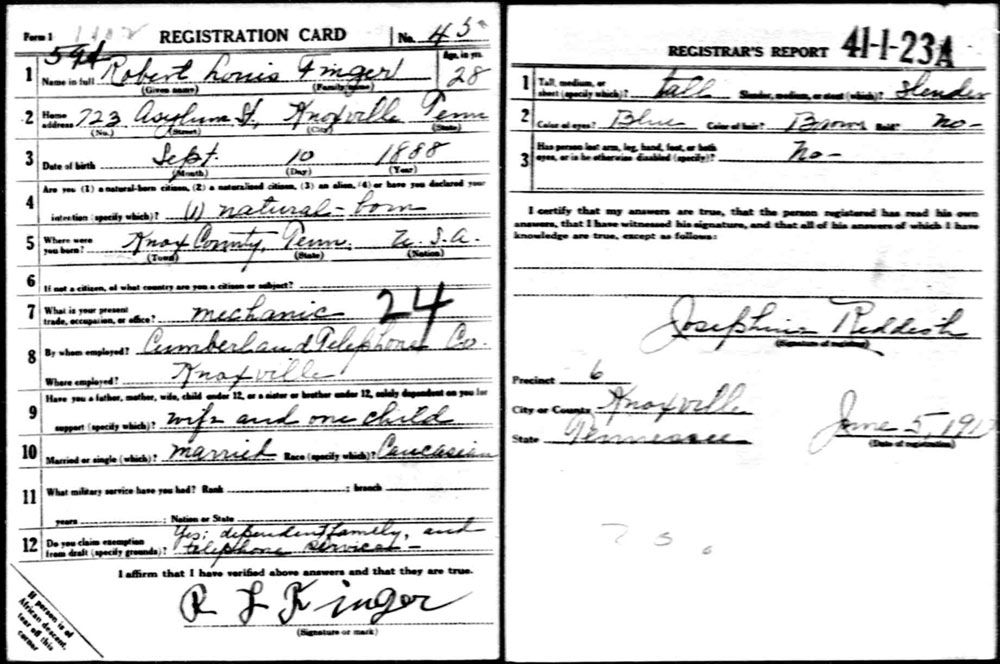 Form 1 1102 REGISTRATION CARD No. 45
594 Age, in yrs.
1 Name in full Robert Louis Finger 28
(Given name) (Family name)
2 Home address 723 Asylum St, Knoxville Tenn
(No.) (Street) (City) (State)
3 Date of birth Sept. 10 1888
(Month) (Day) (Year)
Are you (1) a natural-born citizen, (2) a naturalized citizen, (3) an alien, (4) or have you declared your
4 intention (specify which)? (1) natural-born
5 Where were you born? Knox County, Tenn. U.S.A.
(Town) (State) (Nation)
6 If not a citizen, of what country are you a citizen or subject?
7 What is your present trade, occupation, or office? mechanic 24
8 By whom employed? Cumberland Telephone Co.
Where employed? Knoxville
Have you a father, mother, wife, child under 12, or a sister or brother under 12, solely dependent on you for
9 support (specify which)? wife and one child
10 Married or single (which)? married Race (specify which)? Caucasian
11 What military service have you had? Rank ; branch
years ; Nation or State
12 Do you claim exemption from draft (specify grounds)? Yes; dependent family, and
telephone service -
I affirm that I have verified above answers and that they are true.
R L Finger
(Signature or mark)
If person is of
African descent,
tear off this
corner
REGISTRAR'S REPORT 41-1-23A
1 Tall, medium, or short (specify which)? Tall Slender, medium, or stout (which)? Slender
2 Color of eyes? Blue Color of hair? Brown Bald? no-
3 Has person lost arm, leg, hand, foot, or both eyes, or is he otherwise disabled (specify)? no-
I certify that my answers are true, that the person registered has read his own
answers, that I have witnessed his signature, and that all of his answers of which I have
knowledge are true, except as follows:
Josephine Reddish
(Signature of registrar)
Precinct 6
City or County Knoxville
State Tennessee June 5, 1917
(Date of registration)